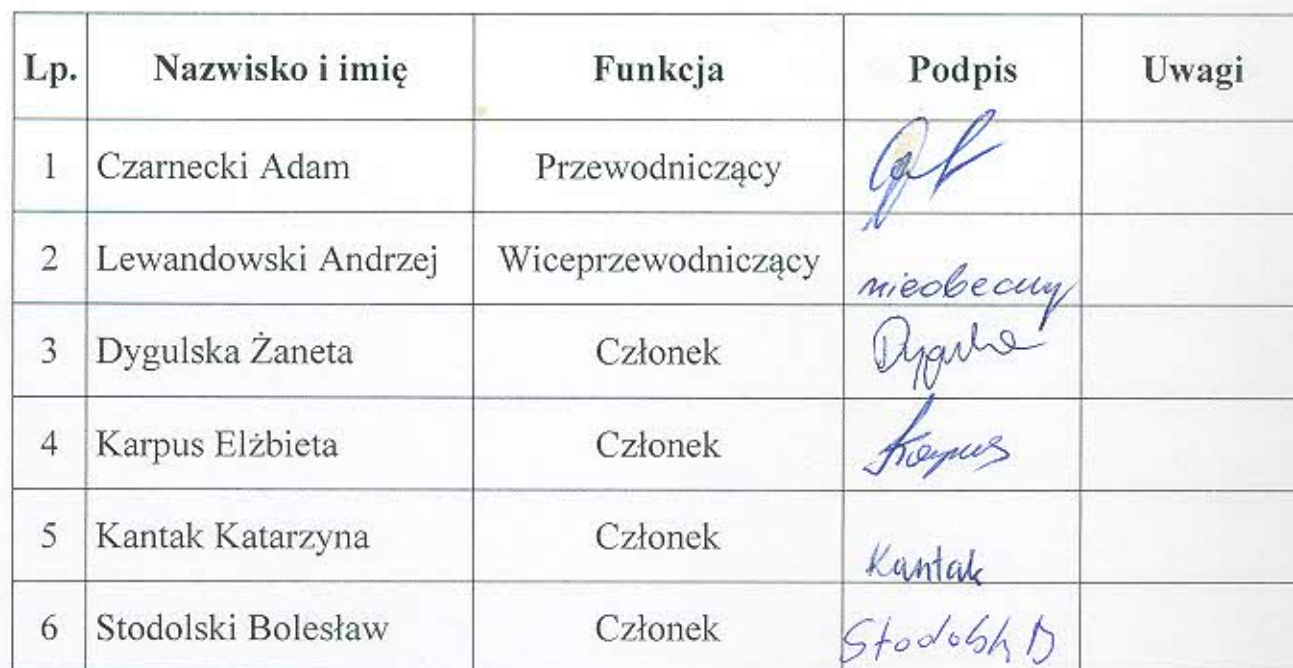 Lp. Nazwisko i imię Funkcja Podpis Uwagi
1 Czarnecki Adam Przewodniczący
2 Lewandowski Andrzej Wiceprzewodniczący nieobecny
3 Dygulska Żaneta Członek
4 Karpus Elżbieta Członek Karpus
5 Kantak Katarzyna Członek Kantak
6 Stodolski Bolesław Członek